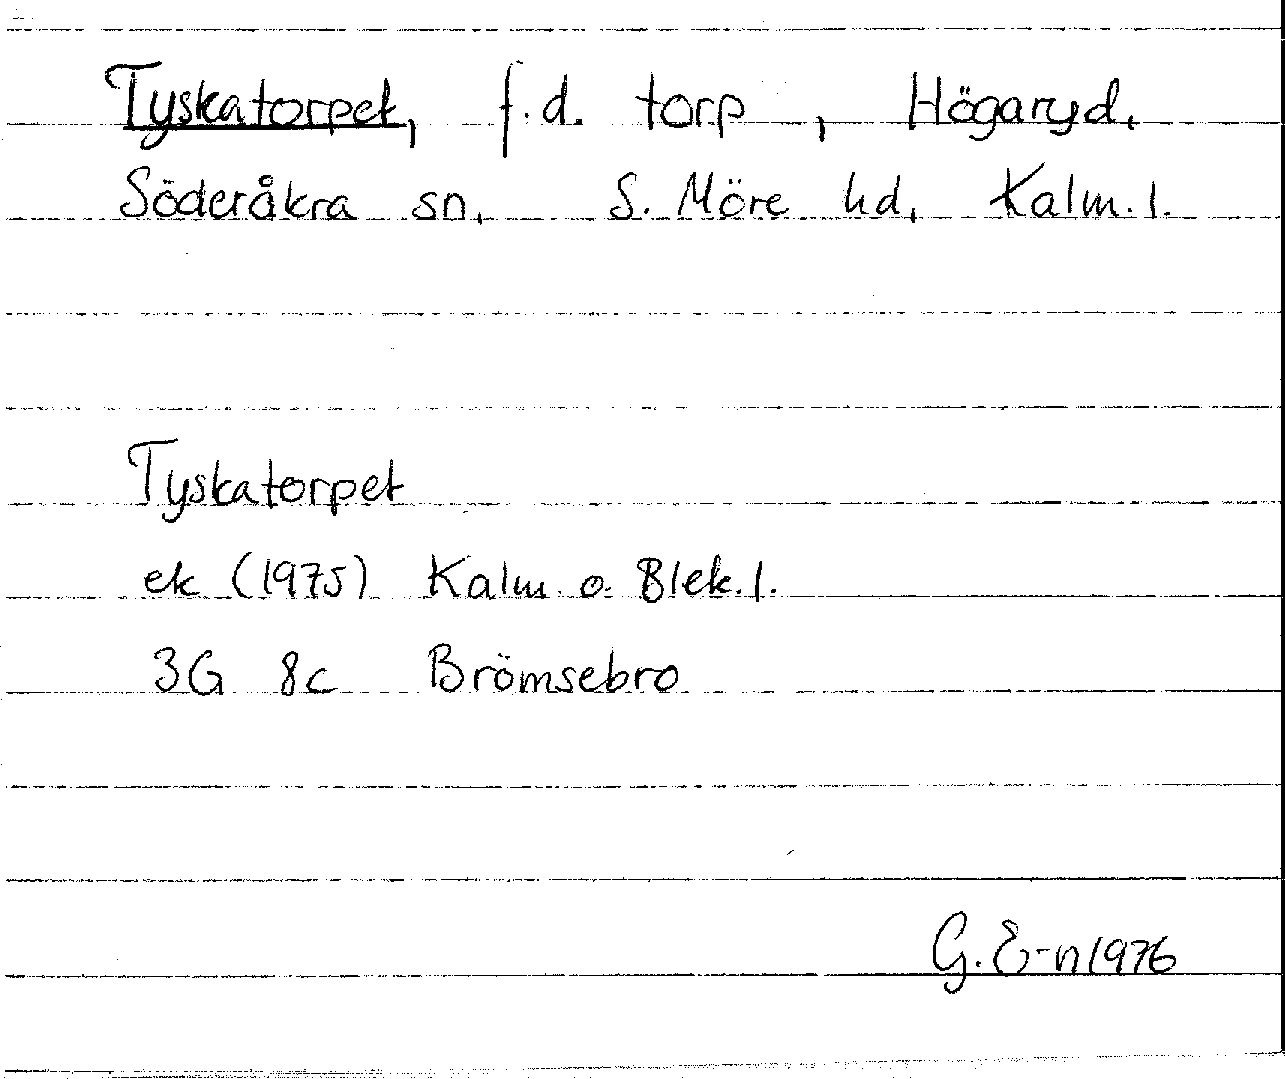 Tyskatorpet, f.d. torp, Högaryd,
Söderåkra sn, S. Möre hd, Kalm. l.
Tyskatorpet
ek (1975) Kalm. o. Blek. l.
3G 8c Brömsebro
G. E-n 1976